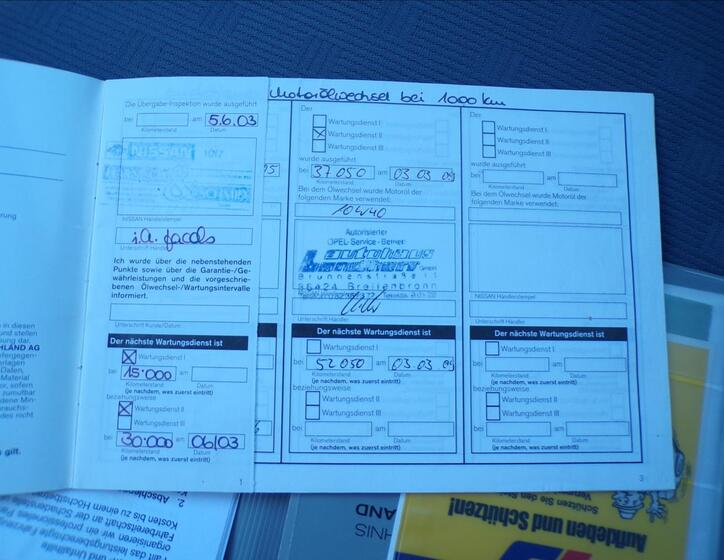 Motorölwechsel bei 1000 km
Die Übergabe-Inspektion wurde ausgeführt
bei am 5.6.03
Kilometerstand Datum
NISSAN
NISSAN Händlerstempel
i.A. Jacobs
Unterschrift Händler
Ich wurde über die nebenstehenden
Punkte sowie über die Garantie-/Ge-
währleistungen und die vorgeschrie-
benen Ölwechsel-/Wartungsintervalle
informiert.
Unterschrift Kunde/Datum
Der nächste Wartungsdienst ist
Wartungsdienst I
bei 15.000 am
Kilometerstand Datum
(je nachdem, was zuerst eintritt)
beziehungsweise
Wartungsdienst II
Wartungsdienst III
bei 30.000 am 06/03
Kilometerstand Datum
(je nachdem, was zuerst eintritt)
1
Der
Wartungsdienst I
Wartungsdienst II
Wartungsdienst III
wurde ausgeführt
bei 37 050 am 03 03 09
Kilometerstand Datum
Bei dem Ölwechsel wurde Motoröl der
folgenden Marke verwendet:
10W40
Autorisierter
OPEL-Service-Betrieb
Autohaus
Brunnenstraße
Breitenbronn
Unterschrift Händler
Der nächste Wartungsdienst ist
Wartungsdienst I
bei 52 050 am 03 03
Kilometerstand Datum
(je nachdem, was zuerst eintritt)
beziehungsweise
Wartungsdienst II
Wartungsdienst III
bei am
Kilometerstand Datum
(je nachdem, was zuerst eintritt)
Der
Wartungsdienst I
Wartungsdienst II
Wartungsdienst III
wurde ausgeführt
bei am
Kilometerstand Datum
Bei dem Ölwechsel wurde Motoröl der
folgenden Marke verwendet:
NISSAN Händlerstempel
Unterschrift Händler
Der nächste Wartungsdienst ist
Wartungsdienst I
bei am
Kilometerstand Datum
(je nachdem, was zuerst eintritt)
beziehungsweise
Wartungsdienst II
Wartungsdienst III
bei am
Kilometerstand Datum
(je nachdem, was zuerst eintritt)
3
Aufkleben und Schützen!